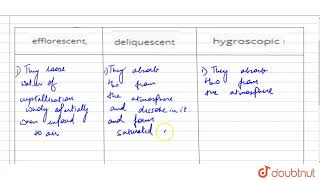 efflorescent,
deliquescent
hygroscopic :
1) They loose
water of
crystallisation
partially
when
to air
1) They absorb
H₂O from
the atmosphere
and dissolve in it.
and form
saturated
1) They absorb
H₂O from
the atmosphere
doubtnut